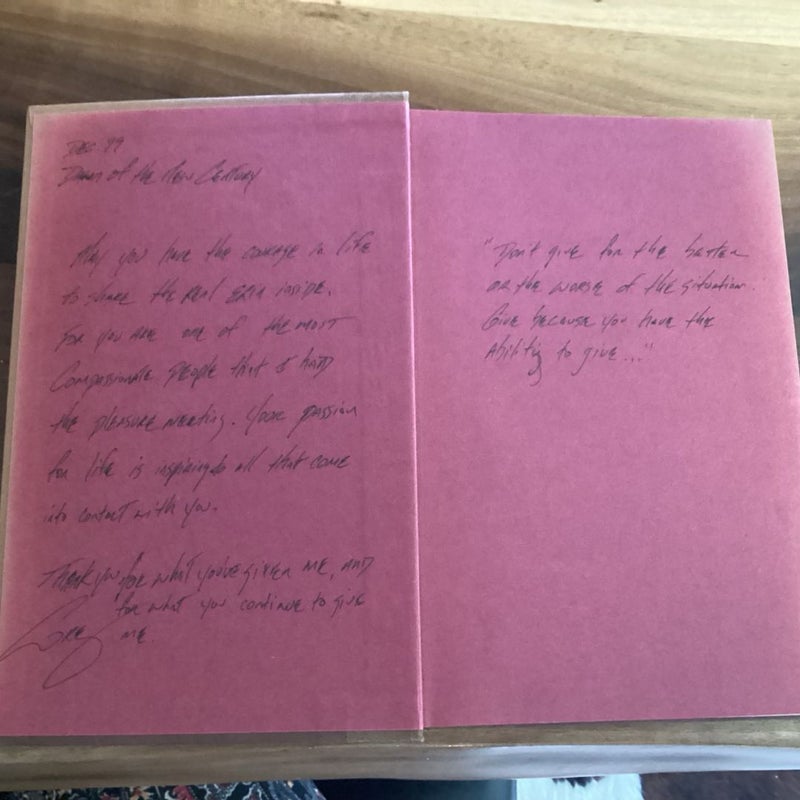 DEC 99
Dawn of the New Century
May you have the courage in life
to share the real Erin inside.
For you are one of the most
Compassionate people that I had
the pleasure meeting. Your passion
for life is inspiring to all that come
into contact with you.
Thank you for what you've given me, and
for what you continue to give
me.
"Don't give for the better
or the worse of the situation.
Give because you have the
Ability to give..."